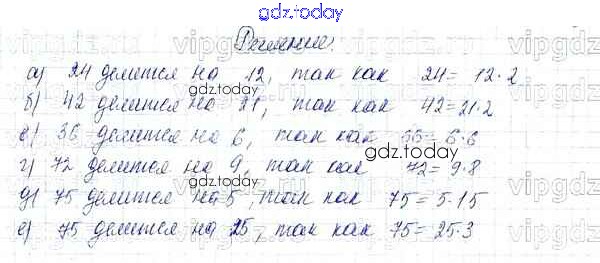 gdz.today
Решение:
а) 24 делится на 12, так как 24 = 12·2
б) 42 делится на 21, так как 42 = 21·2
в) 36 делится на 6, так как 36 = 6·6
г) 72 делится на 9, так как 72 = 9·8
д) 75 делится на 5, так как 75 = 5·15
е) 75 делится на 25, так как 75 = 25·3
gdz.today
gdz.today
gdz.today
gdz.today